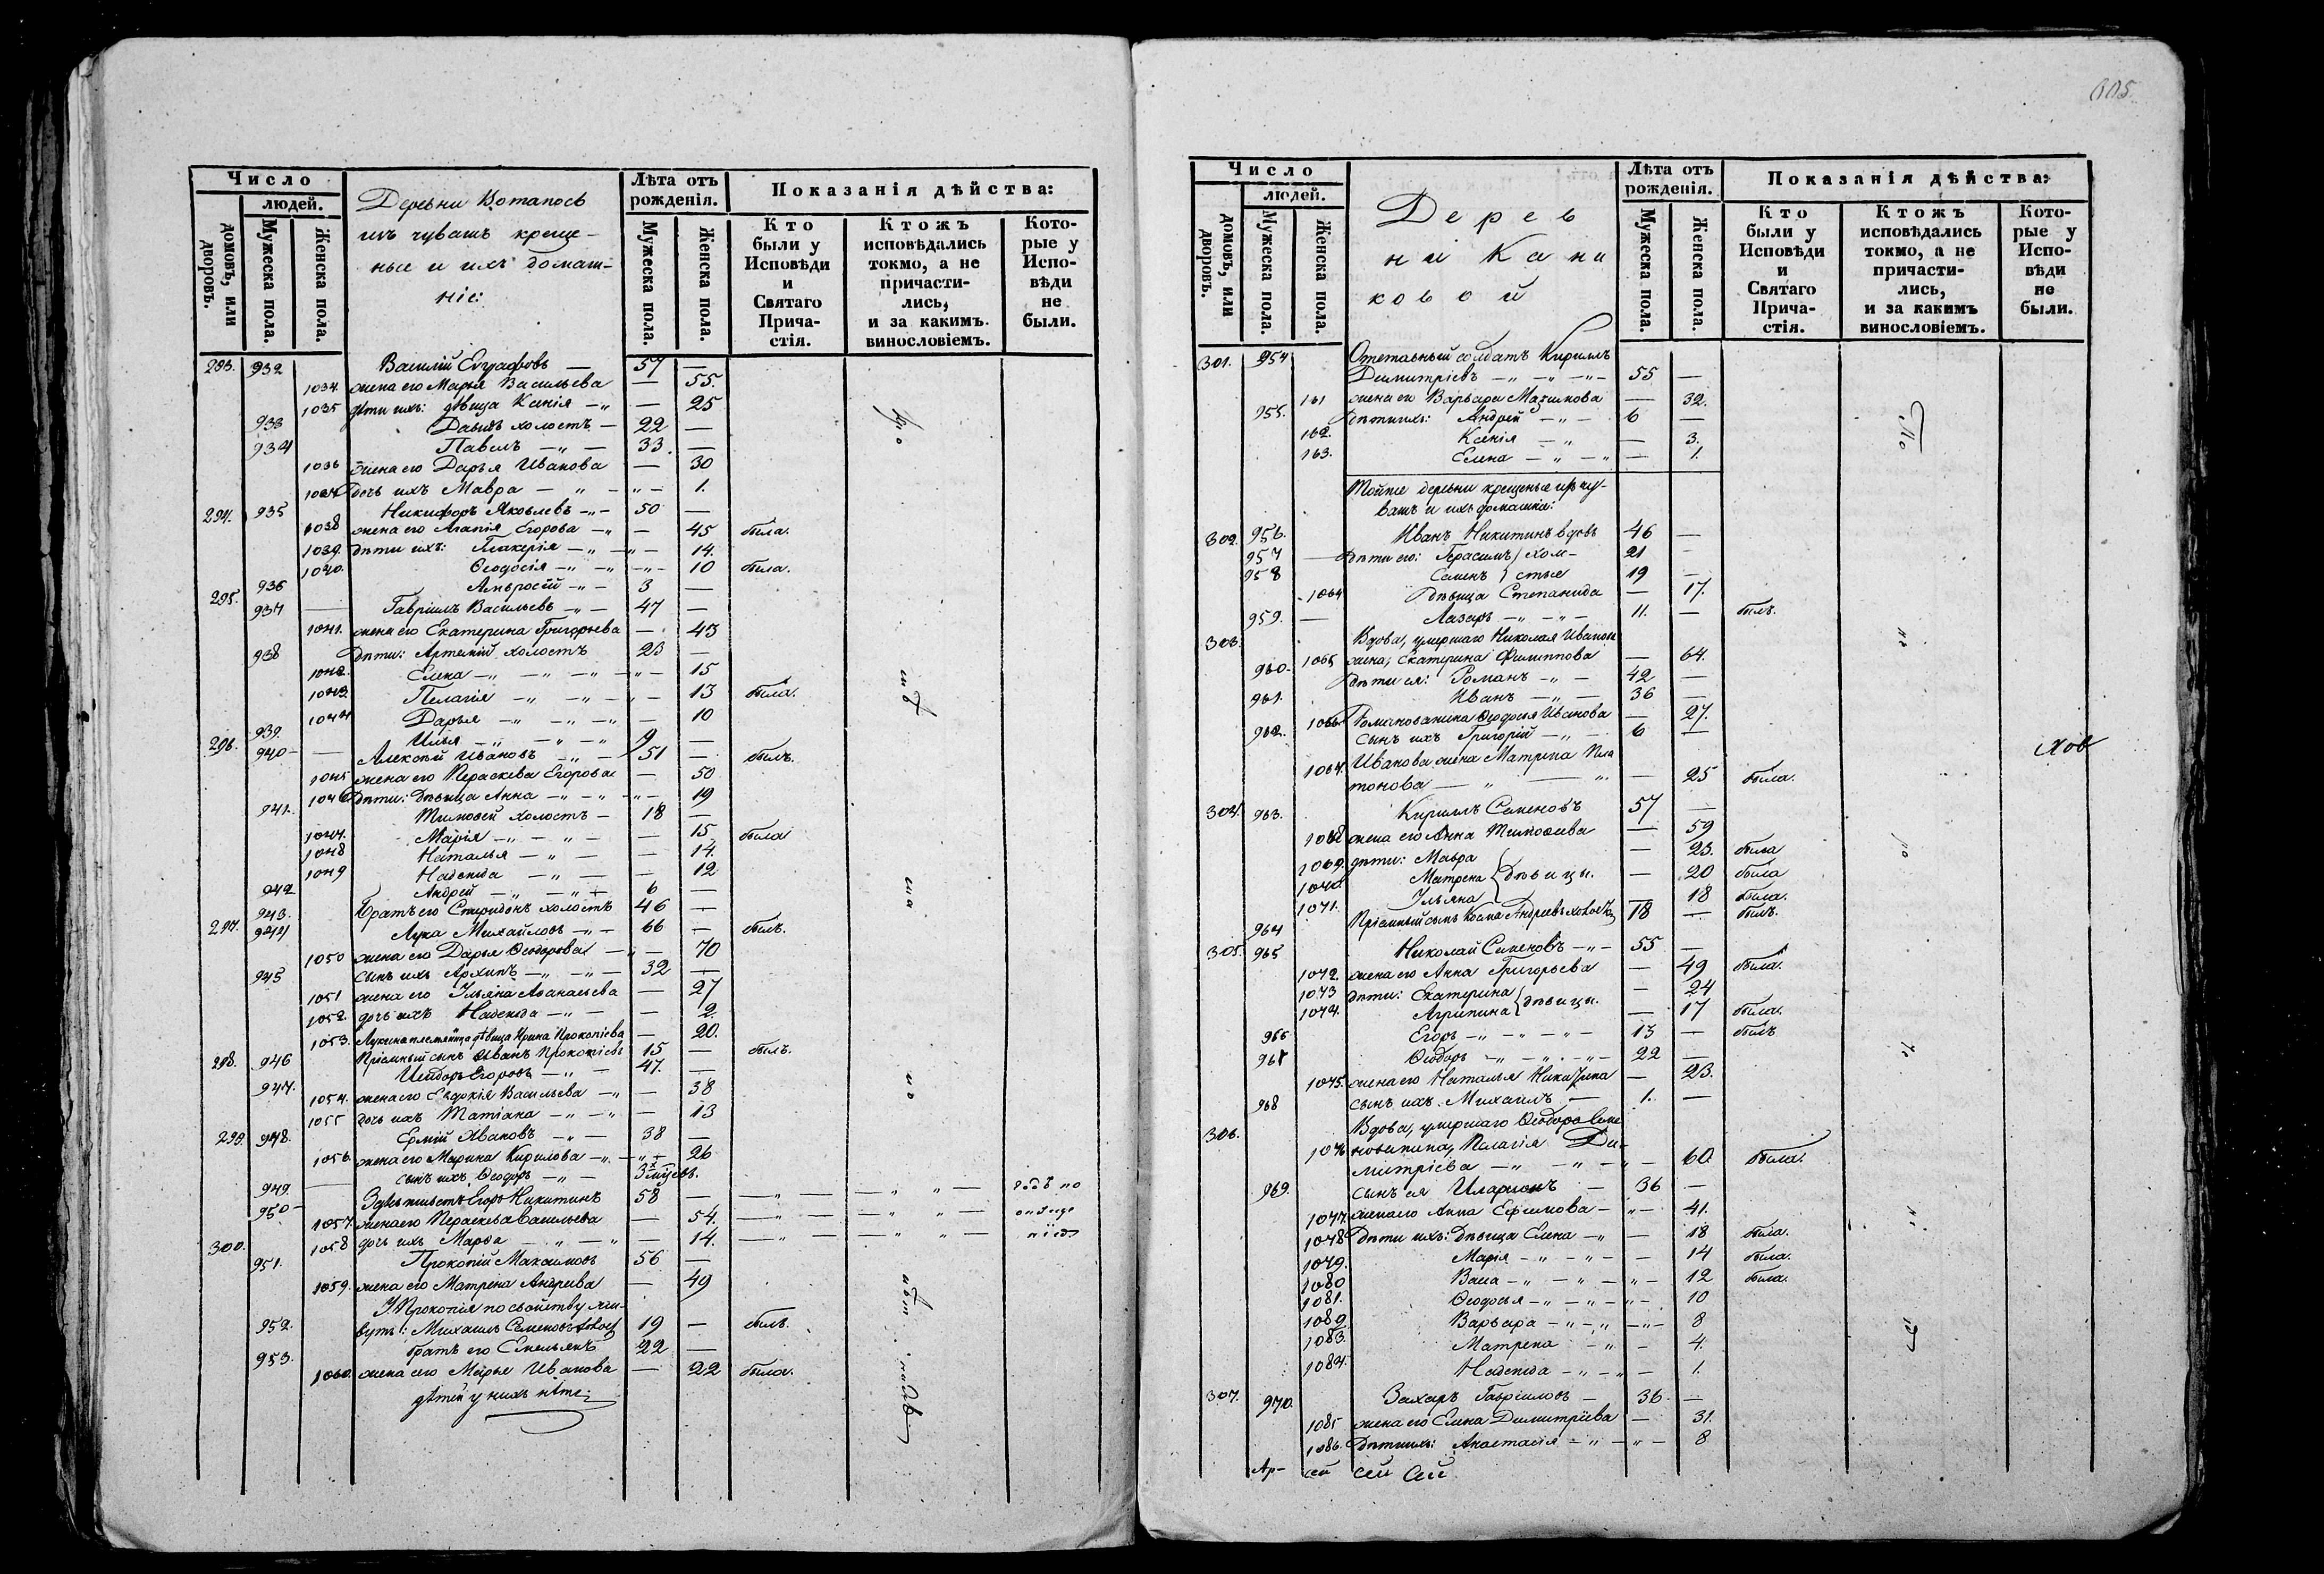 Число
людей.
домовъ, или дворовъ.
Мужеска пола.
Женска пола.
Деревни
изъ чувашъ креще-
ные и ихъ домаш-
ніе:
Лѣта отъ рожденія.
Мужеска пола.
Женска пола.
Показанія дѣйства:
Кто были у Исповѣди и Святаго Прича-стія.
Ктожъ исповѣдались токмо, а не причасти-лись, и за какимъ винословіемъ.
Кото-рые у Испо-вѣди не были.
293. 932 Василій Евграфовъ — 57 —
1034. жена его Марья Васильева — 55.
1035 дѣти ихъ: дѣвица Ксенія — 25
933 Давидъ холостъ — 22 —
934 Павелъ — 33. —
1036 жена его Дарья Иванова — 30
дочь ихъ Мавра — 1.
294. 935 Никифоръ Яковлевъ — 50 —
1038 жена его Агапія Егорова — 45 была.
1039. дѣти ихъ: Гликерія — 14.
Ѳеодосія — 10 была.
936 Амвросій — 3 —
295. 937 Гавріилъ Васильевъ — 47 —
1041. жена его Екатерина Григорьева — 43
938 дѣти: Артемій холостъ 23 —
1042. Елена — 15
1043. Пелагія — 13 была.
1044 Дарья — 10
939. Илья — 9 —
296. 940 — Алексѣй Ивановъ — 51 — былъ.
1045 жена его Параскева Егорова — 50
1046 дѣти: дѣвица Анна — 19
941. Тимоѳей холостъ — 18 —
1047. Марія — 15 была
1048 Наталья — 14.
1049 Надежда — 12
942 Андрей — 6 —
943. Братъ его Спиридонъ холостъ 46 —
297. 944 Лука Михайловъ — 66 — былъ.
1050 жена его Дарья Ѳеодорова — 70
945 сынъ ихъ Архипъ — 32 —
1051 жена его Ульяна Аѳанасьева — 27
1052. дочь ихъ Надежда — 2.
1053. Лукина племянница дѣвица Ирина Прокопіева — 20.
298. 946 Пріемный сынъ Иванъ Прокопіевъ 15 — былъ.
947. Исидоръ Егоровъ — 47. —
1054. жена его Евдокія Васильева — 38
1055 дочь ихъ Татіана — 13
299. 948. Ермій Ивановъ — 38 —
1056. жена его Марина Кирилова — 26
949. сынъ ихъ Ѳеодоръ —
950 — Егоръ Никитинъ 58 —
1057. жена его Параскева Васильева — 54.
300. 1058 дочь ихъ Марѳа — 14.
951. Прокопій Максимовъ 56 —
1059. жена его Матрена Андреева — 49
У Прокопія по свойству жи-
952. вутъ: Михаилъ Семеновъ холост 19 — былъ.
953. братъ его Емельянъ 22 —
1060. жена его Марья Иванова — 22 была.
дѣтей у нихъ нѣтъ;
605
Число
людей.
домовъ, или дворовъ.
Мужеска пола.
Женска пола.
Дерев
ни Кани
ковой
Лѣта отъ рожденія.
Мужеска пола.
Женска пола.
Показанія дѣйства:
Кто были у Исповѣди и Святаго Прича-стія.
Ктожъ исповѣдались токмо, а не причасти-лись, и за какимъ винословіемъ.
Кото-рые у Испо-вѣди не были.
301. 954 Отставный солдатъ Кириллъ
Димитріевъ — 55 —
161 жена его Варвара — 32.
955. дѣти ихъ: Андрей — 6 —
162. Ксенія — 3.
163. Елена — 1.
Тойже деревни крещеные изъ чу-
вашъ и ихъ домашніе:
302. 956. Иванъ Никитинъ вдовъ 46 —
957 — дѣти его: Герасимъ } хол- 21 —
958 Семенъ } стые 19 —
1064 дѣвица Степанида — 17.
959. — Лазарь — 11. — былъ.
303. Вдова, умершаго Николая Иванова
1065 жена, Екатерина Филиппова — 64.
960. дѣти ея: Романъ — 42 —
961. Иванъ — 36 —
1066 Романова жена Ѳеодосья Иванова — 27.
962. сынъ ихъ Григорій — 6 —
1067. Иванова жена Матрена Пла
тонова — 25 была.
304. 963. Кириллъ Семеновъ 57 —
1068 жена его Анна Тимоѳеева — 59
1069. дѣти: Мавра — 23. была
1070. Матрена } дѣвицы. — 20 была
1071. Ульяна — 18 была.
964 Пріемный сынъ Косма Андреевъ 18 — былъ.
305. 965 Николай Семеновъ — 55 —
1072. жена его Анна Григорьева — 49 была.
1073 дѣти: Екатерина } дѣвицы. — 24
1074. Агрипина — 17 была.
966 Егоръ — 13 — былъ
967 Ѳеодоръ — 22 —
1075. жена его Наталья Никитина — 23.
968 сынъ ихъ Михаилъ — 1. —
306. Вдова, умершаго Ѳеодора Семе
1076 нова жена, Пелагія Ди-
митріева — 60. была.
969. сынъ ея Иларіонъ — 36 —
1077. жена его Анна Ефимова — 41.
1078 Дѣти ихъ: дѣвица Елена — 18 была.
1079. Марія — 14 была.
1080 Васса — 12 была.
1081. Ѳеодосья — 10
1082 Варвара — 8
1083. Матрена — 4.
1084. Надежда — 1.
307. 970. Захаръ Гавріиловъ — 36. —
1085 жена его Елена Димитріева — 31.
1086. Дѣти ихъ: Анастасія — 8